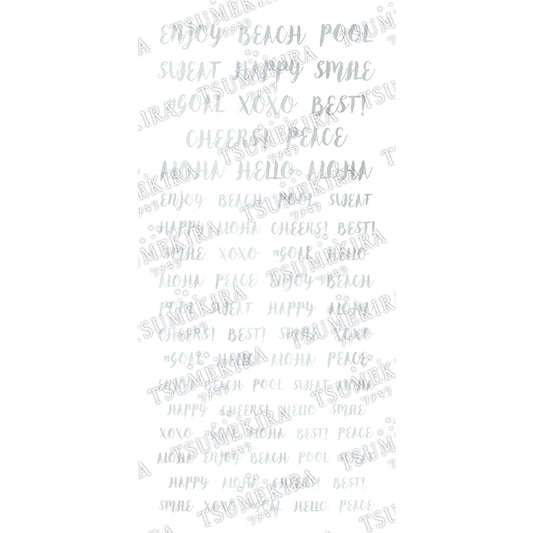 ENJOY BEACH POOL
SWEAT HAPPY SMILE
#GOAL XOXO BEST!
CHEERS! PEACE
ALOHA HELLO ALOHA
ENJOY BEACH POOL SWEAT
HAPPY ALOHA CHEERS! BEST!
SMILE XOXO #GOAL HELLO
ALOHA PEACE ENJOY BEACH
POOL SWEAT HAPPY ALOHA
CHEERS! BEST! SMILE XOXO
#GOAL HELLO ALOHA PEACE
ENJOY BEACH POOL SWEAT ALOHA
HAPPY CHEERS! HELLO SMILE
XOXO #GOAL ALOHA BEST! PEACE
ALOHA ENJOY BEACH POOL SWEAT
HAPPY ALOHA CHEERS! BEST!
SMILE XOXO #GOAL HELLO PEACE
TSUMEKIRA
ツメキラ